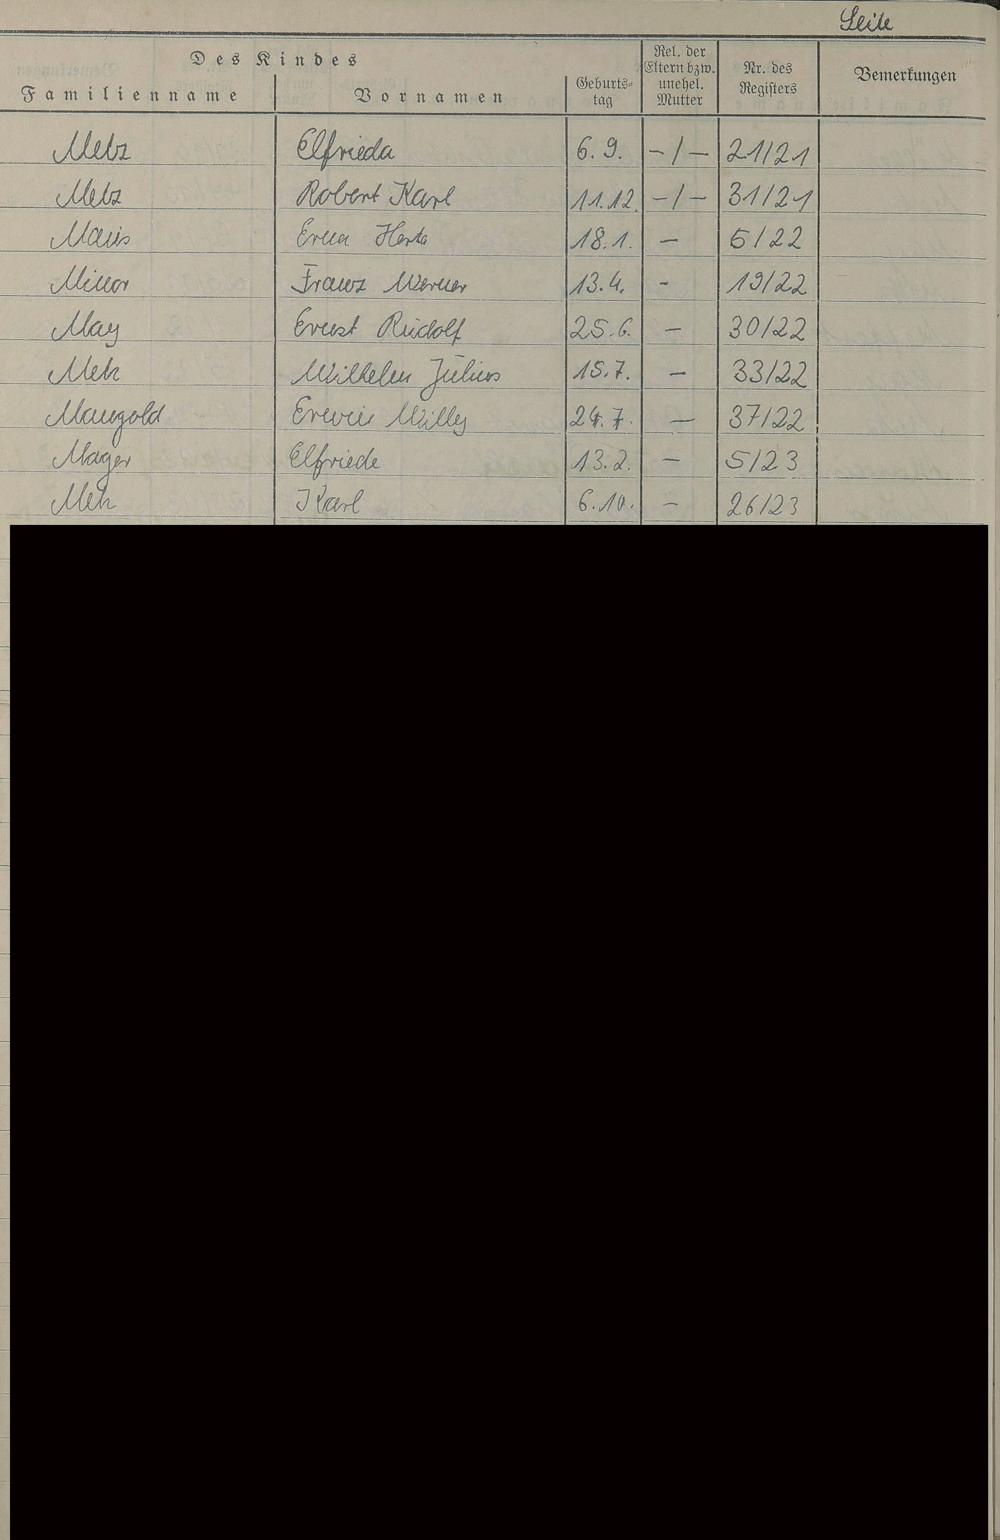 Seite
Des Kindes
Familienname Vornamen Geburts-tag Rel. der Eltern bzw. unehel. Mutter Nr. des Registers Bemerkungen
Metz Elfrieda 6. 9. -/- 21/21
Metz Robert Karl 11.12. -/- 31/21
Erna Herta 18.1. - 5/22
Minor Franz Werner 13.4. - 19/22
May Ernst Rudolf 25.6. - 30/22
Wilhelm Julius 15.7. - 33/22
Mangold Erwin Willy 24.7. - 37/22
Mager Elfriede 13.2. - 5/23
Karl 6.10. - 26/23